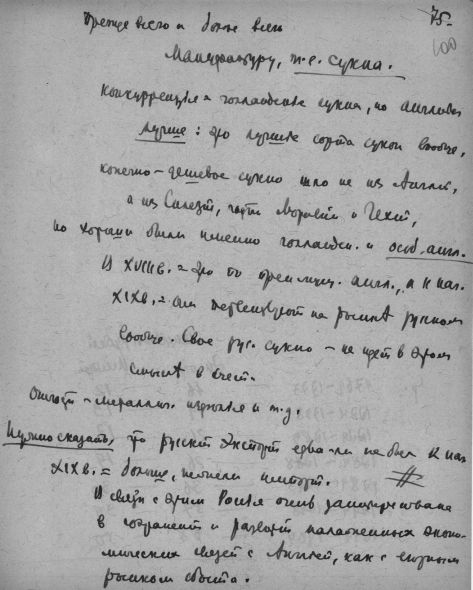 75.
100
Прежде всего и более всего
Мануфактуру, т.е. сукна.
Конкуренция = голландские сукна, но английск.
лучше: это лучшие сорта сукон вообще,
конечно – дешевое сукно шло не из Англии,
а из Силезии, части Моравии и Чехии,
но хорошие были именно голландск. и особ. англ.
В XVIII в. = это по преимущ. англ., а к нач.
XIX в. = они первенствуют на рынке русском
вообще. Свое рус. сукно – не идет в этом
смысле в счет.
– металлич. изделия и т.д.
Нужно сказать, что русский экспорт едва ли не был к нач.
XIX в. = больше, нежели импорт.
В связи с этим Россия очень заинтересована
в сохранении и развитии налаженных эконо-
мических связей с Англией, как с верным
рынком сбыта.